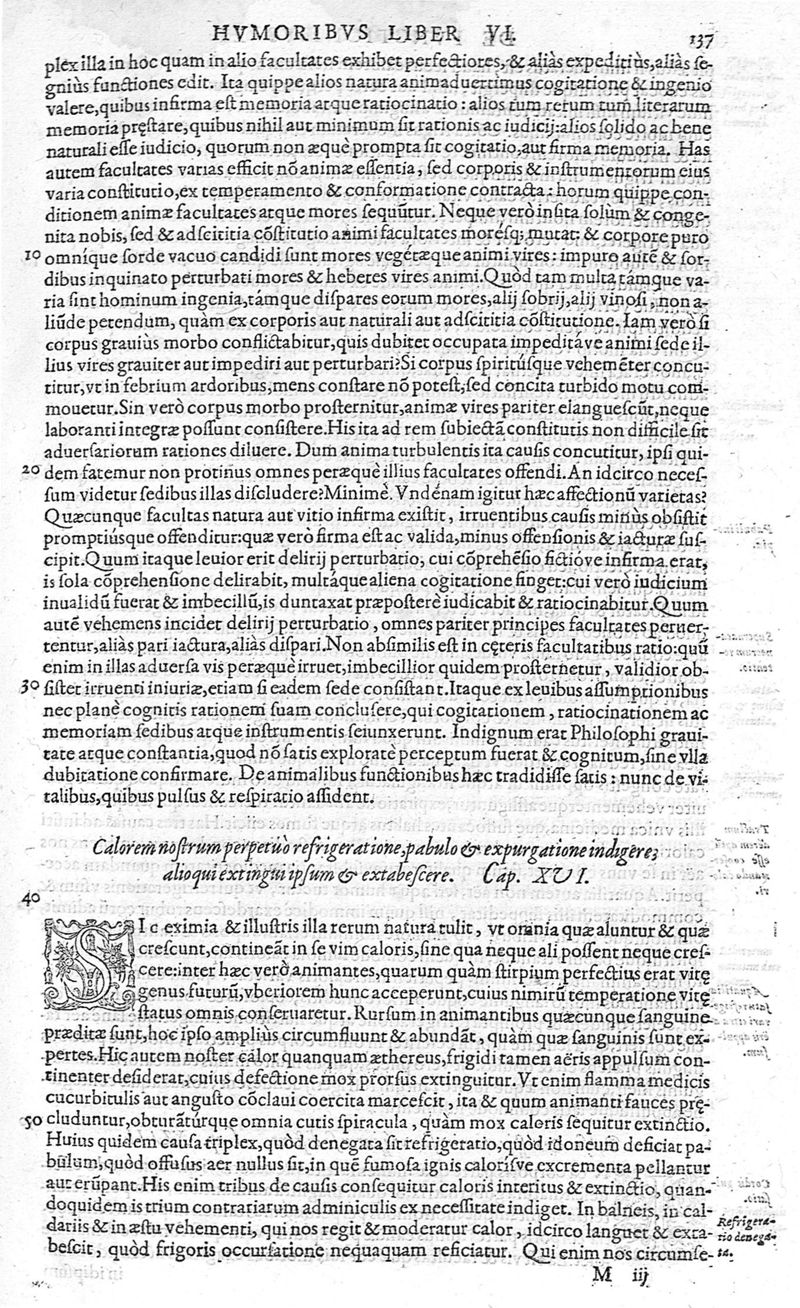 HVMORIBVS LIBER VI. 137
plex illa in hoc quam in alio facultates exhibet perfectiores, & aliàs expeditiùs, aliàs se-
gniùs functiones edit. Ita quippe alios natura animaduertimus cogitatione & ingenio
valere, quibus infirma est memoria atque ratiocinatio: alios tum rerum tum literarum
memoria pręstare, quibus nihil aut minimum sit rationis ac iudicij: alios solido ac bene
naturali esse iudicio, quorum non æquè prompta sit cogitatio, aut firma memoria. Has
autem facultates varias efficit nō animæ essentia, sed corporis & instrumentorum eius
varia constitutio, ex temperamento & conformatione contracta: horum quippe con-
ditionem animæ facultates atque mores sequūtur. Neque verò insita solùm & conge-
nita nobis, sed & adscititia cōstitutio animi facultates morésq; mutat: & corpore puro
10 omníque sorde vacuo candidi sunt mores vegétæque animi vires: impuro autē & sor-
dibus inquinato perturbati mores & hebetes vires animi. Quòd tam multa támque va-
ria sint hominum ingenia, támque dispares eorum mores, alij sobrij, alij vinosi, non a-
liūde petendum, quàm ex corporis aut naturali aut adscititia cōstitutione. Iam verò si
corpus grauiùs morbo conflictabitur, quis dubitet occupata impeditáve animi sede il-
lius vires grauiter aut impediri aut perturbari? Si corpus spiritúsque vehemēter concu-
titur, vt in febrium ardoribus, mens constare nō potest, sed concita turbido motu com-
mouetur. Sin verò corpus morbo prosternitur, animæ vires pariter elanguescūt, neque
laboranti integræ possunt consistere. His ita ad rem subiectā constitutis non difficile sit
aduersariorum rationes diluere. Dum anima turbulentis ita causis concutitur, ipsi qui-
20 dem fatemur non protinus omnes peræquè illius facultates offendi. An idcirco neces-
sum videtur sedibus illas discludere? Minimè. Vndénam igitur hæc affectionū varietas?
Quæcunque facultas natura aut vitio infirma existit, irruentibus causis minùs obsistit
promptiùsque offenditur: quæ verò firma est ac valida, minus offensionis & iacturæ sus-
cipit. Quum itaque leuior erit delirij perturbatio, cui cōprehēsio fictióve infirma erat,
is sola cōprehensione delirabit, multáque aliena cogitatione finget: cui verò iudicium
inualidū fuerat & imbecillū, is duntaxat præposterè iudicabit & ratiocinabitur. Quum
autē vehemens incidet delirij perturbatio, omnes pariter principes facultates peruer-
tentur, aliàs pari iactura, aliàs dispari. Non absimilis est in cęteris facultatibus ratio: quū
enim in illas aduersa vis peræquè irruet, imbecillior quidem prosternetur, validior ob-
30 sistet irruenti iniuriæ, etiam si eadem sede consistant. Itaque ex leuibus assumptionibus
nec planè cognitis rationem suam conclusere, qui cogitationem, ratiocinationem ac
memoriam sedibus atque instrumentis seiunxerunt. Indignum erat Philosophi graui-
tate atque constantia, quod nō satis exploratè perceptum fuerat & cognitum, sine vlla
dubitatione confirmare. De animalibus functionibus hæc tradidisse satis: nunc de vi-
talibus, quibus pulsus & respiratio assident.
Calorem nostrum perpetuò refrigeratione, pabulo & expurgatione indigere;
alioqui extingui ipsum & extabescere. Cap. XVI.
40
SIc eximia & illustris illa rerum natura tulit, vt omnia quæ aluntur & quæ
crescunt, contineāt in se vim caloris, sine qua neque ali possent neque cres-
cere: inter hæc verò animantes, quarum quàm stirpium perfectius erat vitę
genus futurū, vberiorem hunc acceperunt, cuius nimirū temperatione vitę
status omnis conseruaretur. Rursum in animantibus quæcunque sanguine
præditæ sunt, hoc ipso ampliùs circumfluunt & abundāt, quàm quæ sanguinis sunt ex-
pertes. Hic autem noster calor quanquam æthereus, frigidi tamen aëris appulsum con-
tinenter desiderat, cuius defectione mox prorsus extinguitur. Vt enim flamma medicis
cucurbitulis aut angusto cōclaui coercita marcescit, ita & quum animanti fauces prę-
50 cluduntur, obturātúrque omnia cutis spiracula, quàm mox caloris sequitur extinctio.
Huius quidem causa triplex, quòd denegata sit refrigeratio, quòd idoneum deficiat pa-
bulum, quòd offusus aer nullus sit, in quē fumosa ignis calorísve excrementa pellantur
aut erūpant. His enim tribus de causis consequitur caloris interitus & extinctio, quan-
doquidem is trium contrariarum adminiculis ex necessitate indiget. In balneis, in cal-
dariis & in æstu vehementi, qui nos regit & moderatur calor, idcirco languet & exta-
bescit, quòd frigoris occursatione nequaquam reficiatur. Qui enim nos circumse-
Refrigera-
tio denega-
ta.
M iij